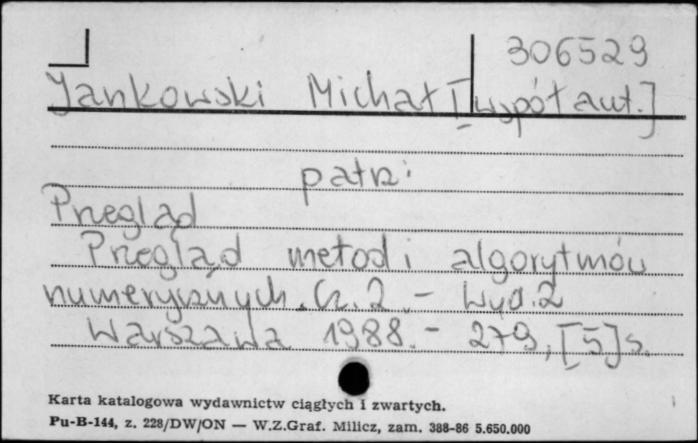 306529
Jankowski Michał [współaut.]
patrz:
Przegląd
Przegląd metod i algorytmów
numerycznych. Cz. 2. – Wyd. 2
Warszawa 1988. – 279, [5] s.
Karta katalogowa wydawnictw ciągłych i zwartych.
Pu-B-144, z. 228/DW/ON — W.Z.Graf. Milicz, zam. 388-86 5.650.000